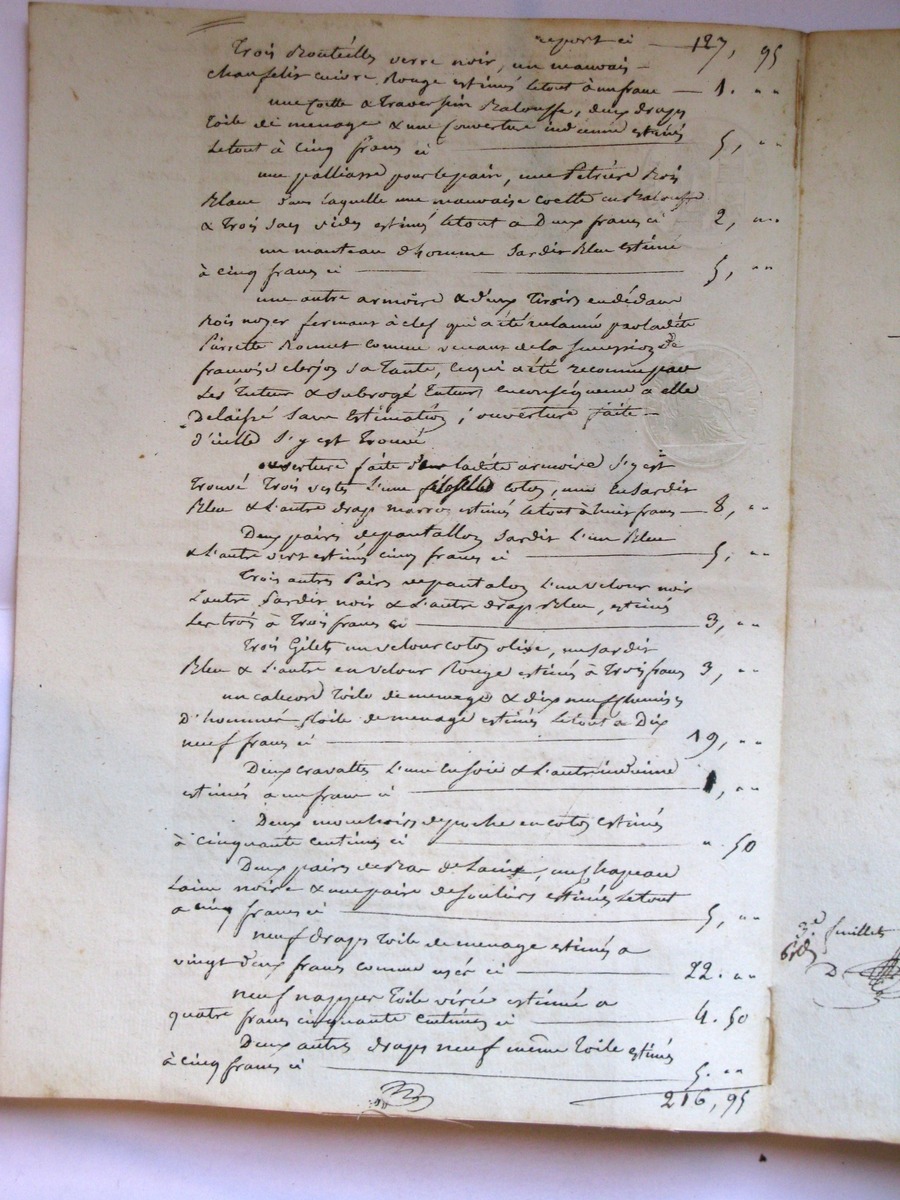 report ci — 127, 95
Trois Bouteilles verre noir, un mauvais
chanfelit cuivre Rouge estimés letout à un franc — 1. " "
une Coette & Traversin Balouffe, deux draps
Toile de menage & une Couverture indienne estimés
Letout à Cinq francs ci — 5, " "
une palliasse pour le pain, une Petrière Bois
Blanc dans laquelle une mauvaise Coette en Balouffe
& Trois Sacs vides estimés letout a Deux francs ci 2, " "
un manteau d'homme Sardis Bleu estimé
à cinq francs ci — 5, " "
une autre armoire & deux Tiroirs en dédans
Bois noyer fermant à clef qui a été reclamée par ladite
Pierrette Bonnet comme venant de la Succession de
françoise clerjon sa Tante, ce qui a été reconnu par
Les Tuteur & Subrogé Tuteur, en conséquence a elle
Delaissé Sans Estimation ; ouverture faite
d'icelle S'y est Trouvé
ouverture faite de ladite armoire S'y est
Trouvé Trois vestes L'une coton, une en Sardis
Bleu & L'autre drap marron estimés letout à huit francs — 8, " "
Deux paires de pantallon Sardis L'un Bleu
& L'autre vert estimés cinq francs ci — 5, " "
Trois autres Paires de pantalon L'un velour noir
L'autre Sardis noir & L'autre drap Bleu, estimés
Les trois à Trois francs ci — 3, " "
Trois Gilets un velour coton olive, un Sardis
Bleu & L'autre en velour Rouge estimés à Trois francs 3, " "
un caleçon Toile de menage & dix neuf chemises
D'homme Toile de menage estimés letout a Dix
neuf francs ci — 19, " "
Deux cravattes L'une en Soie & L'autre indienne
estimés a un franc ci — 1, " "
Deux mouchoirs de poche en coton estimés
à cinquante centimes ci — " 50
Deux paires de Bas de Laine, un chapeau
Laine noire & une paire de Souliers estimés Letout
a cinq francs ci — 5, " "
neuf draps Toile de menage estimés a
vingt deux francs comme usés ci — 22. " "
neuf nappes Toile estimé a
quatre francs cinquante centimes ci — 4. 50
Deux autres draps neuf même Toile estimés
à cinq francs ci — 5. " "
216, 95
3e feuillets